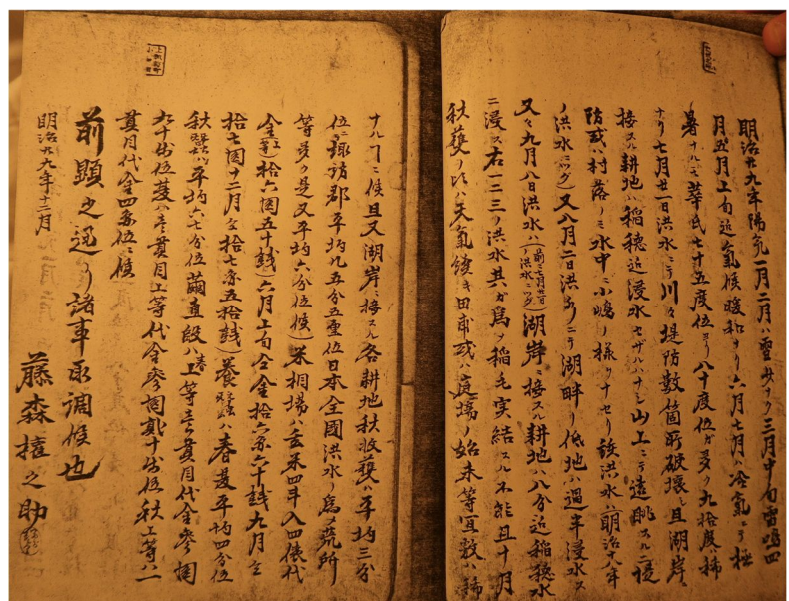 明治廿九年陽気一月二月ハ雪少ナク三月中旬雪鳴四
月五月上旬迄気候暖和ナリ六月七月ハ冷気ニテ極
暑ナルモ華氏七十五度位ヨリ八十度位ガ多ク九拾度ハ稀
ナリ七月廿一日洪水ニテ川々堤防数箇所破壊シ且湖岸ニ
接スル耕地ハ稲穂迄浸水セザルハナシ山上ニテ遠眺スルニ
防或ハ村落ノミ水中ニ小嶋ノ様ヲナセリ該洪水ハ明治廿八年
ノ洪水ニツグ又八月二日洪水アリテ湖畔ノ低地ハ過半浸水ス
又々九月八日洪水湖岸ニ接スル耕地ハ八分迄稲穂水
ニ浸ス右一二三ノ洪水其ガ為メ稲毛実結スル不能且十月
秋穫ノ比ハ天気続キ田甫或ハ庭場ノ始末等冝敷ハ稀
ナルヿニ候且又湖岸ニ接スル各耕地秋収穫ハ平均三分
位ニ諏訪郡平均九五分五重位日本全國洪水ノ為メ荒所
等多ク是又平均六分位候米相場ハ玄米四斗入四俵代
金拾六円五十銭六月上旬仝金拾六円六十銭九月仝
拾七円十二月仝拾七円五拾銭養蚕ハ春夏平均四分位
秋蚕ハ平均六七分位繭直段ハ上等壱貫目代金参円
九十銭位夏ハ壱貫目上等代金参円貳十銭位秋上等ハ
貫目代金四円位ニ候
前顕之通リ諸事取調候也
明治廿九年十二月
藤森権之助